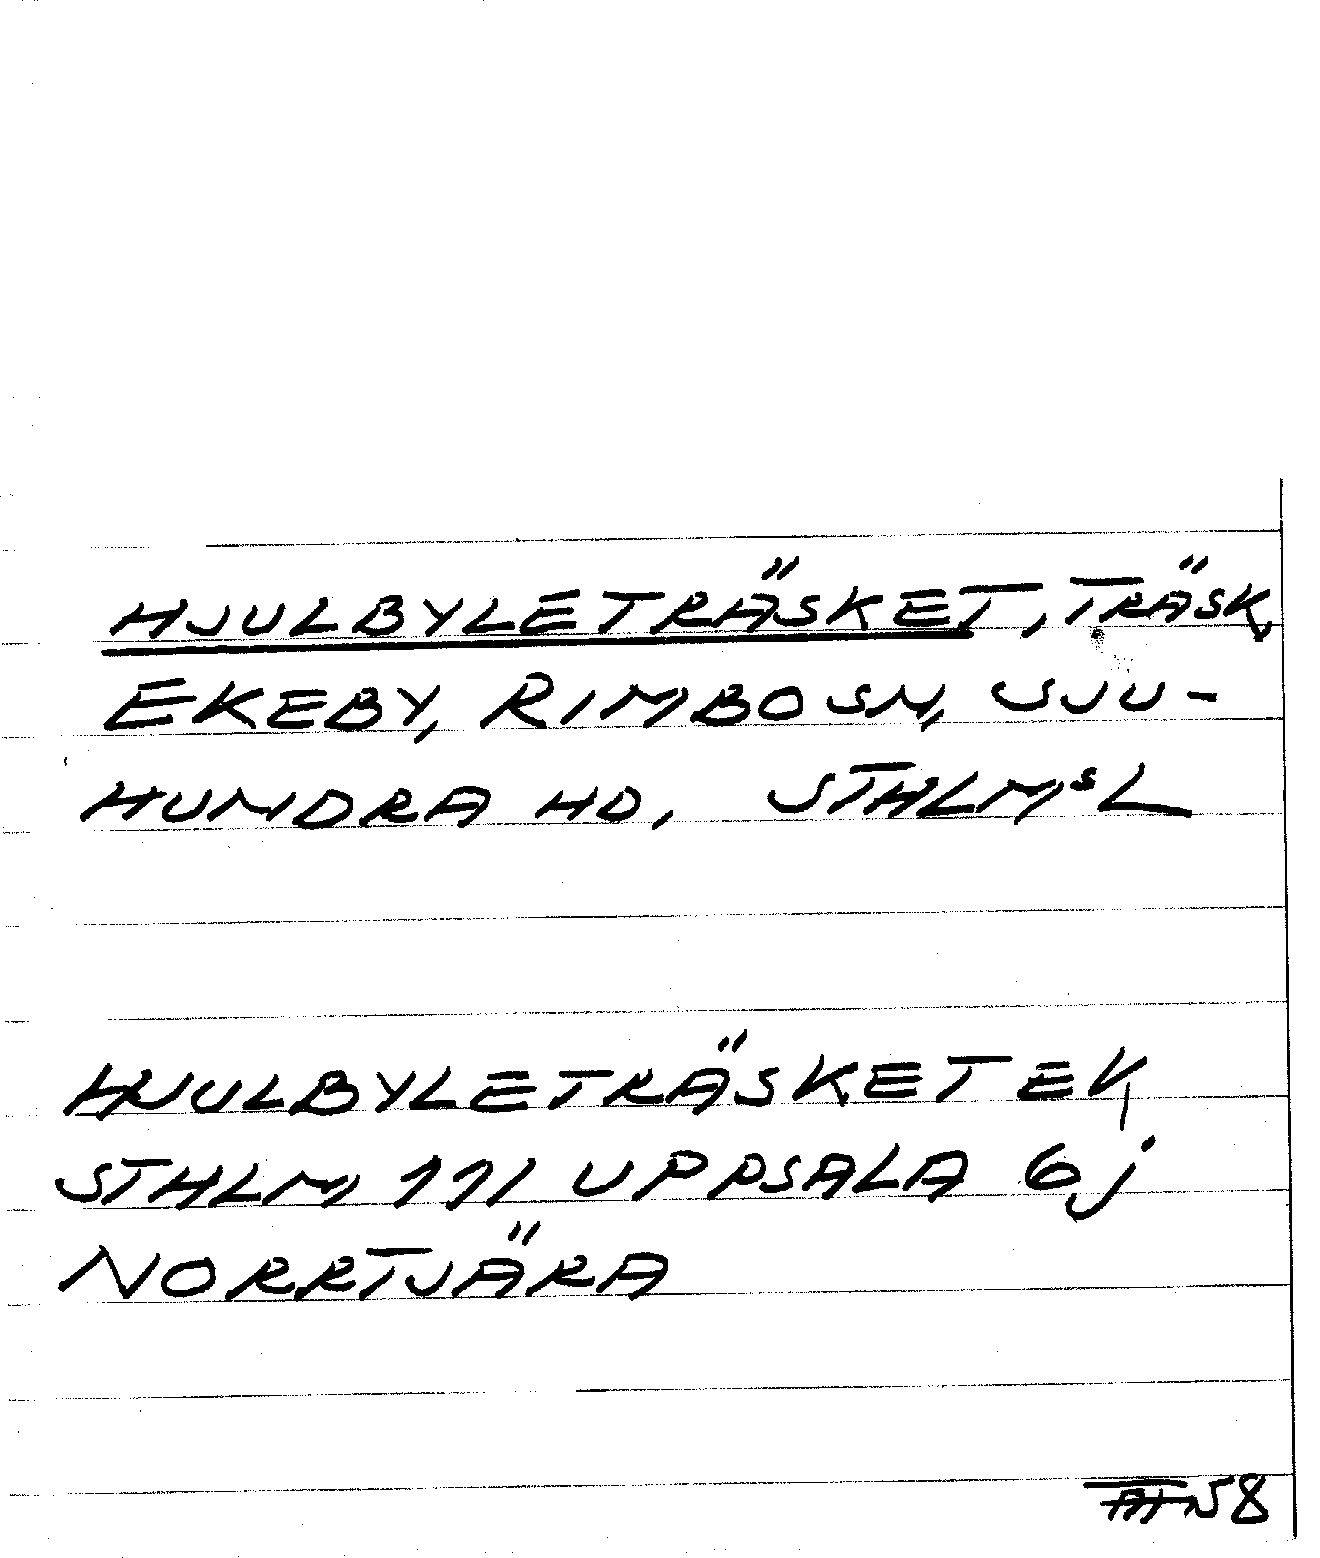 HJULBYLETRÄSKET, TRÄSK,
EKEBY, RIMBO SN, SJU-
HUNDRA HD, STHLMˢ L
HJULBYLETRÄSKET EK,
STHLM 111 UPPSALA 6j
NORRTJÄRA
58